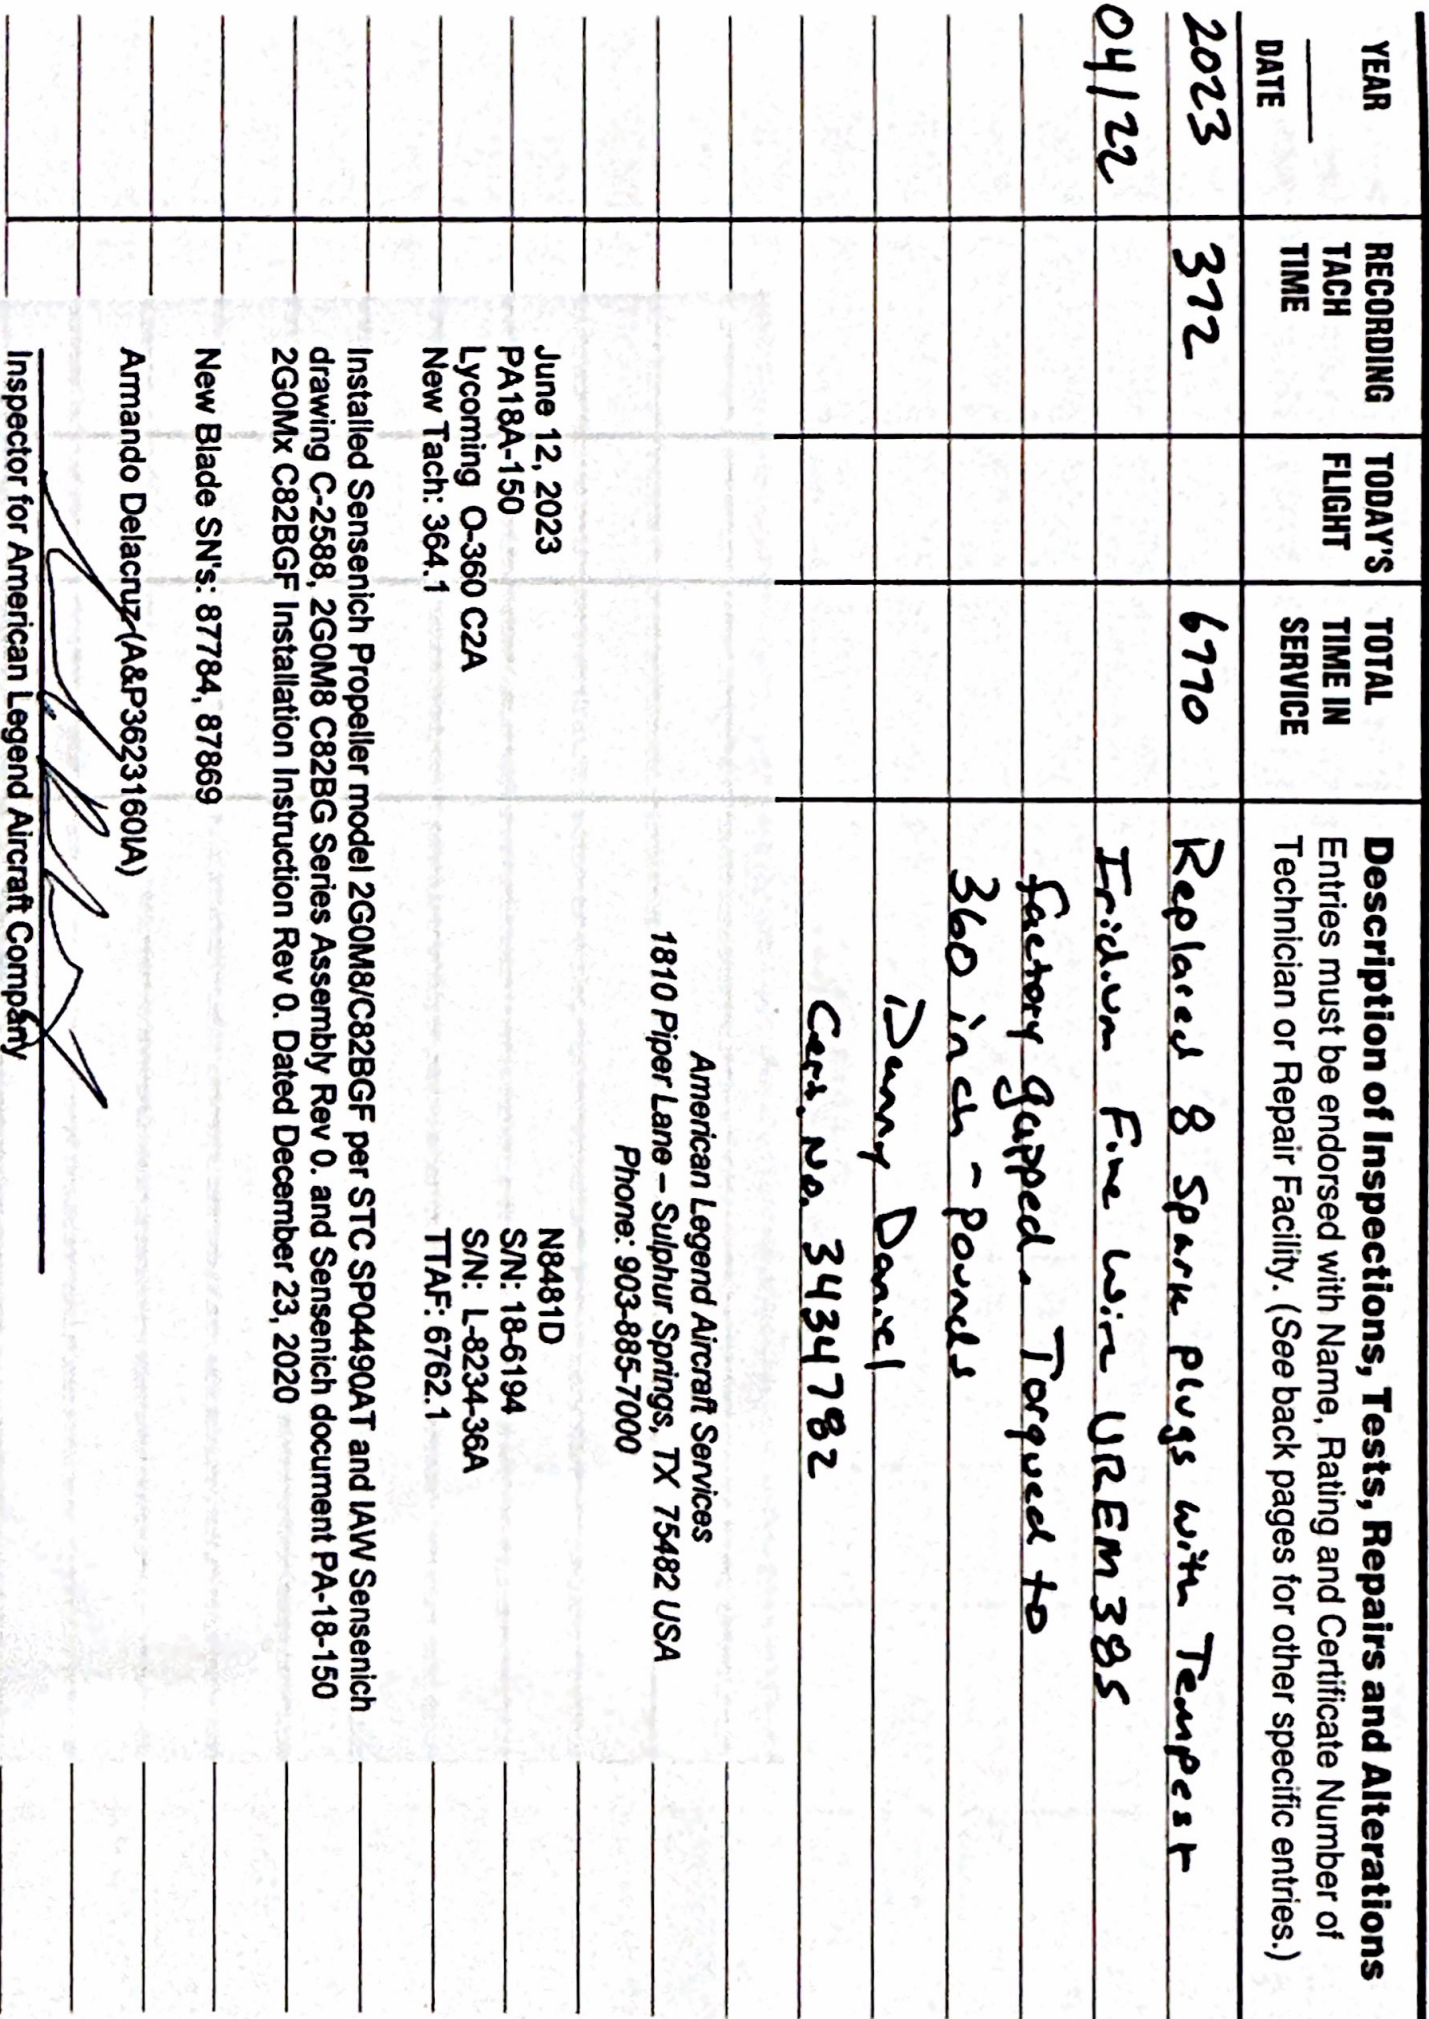 YEAR
DATE
RECORDING
TACH
TIME
TODAY'S
FLIGHT
TOTAL
TIME IN
SERVICE
Description of Inspections, Tests, Repairs and Alterations
Entries must be endorsed with Name, Rating and Certificate Number of
Technician or Repair Facility. (See back pages for other specific entries.)
2023 372 6770 Replaced 8 spark plugs with Tempest
04/22 Iridium Fine Wire UREM38S
factory gapped. Torqued to
360 inch-pounds
Danny Daniel
Cert. No. 3434782
American Legend Aircraft Services
1810 Piper Lane – Sulphur Springs, TX 75482 USA
Phone: 903-885-7000
June 12, 2023 N8481D
PA18A-150 S/N: 18-6194
Lycoming O-360 C2A S/N: L-8234-36A
New Tach: 364.1 TTAF: 6762.1
Installed Sensenich Propeller model 2G0M8/C82BGF per STC SP04490AT and IAW Sensenich
drawing C-2588, 2G0M8 C82BG Series Assembly Rev 0. and Sensenich document PA-18-150
2G0Mx C82BGF Installation Instruction Rev 0. Dated December 23, 2020
New Blade SN's: 87784, 87869
Armando Delacruz (A&P3623160IA)
Inspector for American Legend Aircraft Company